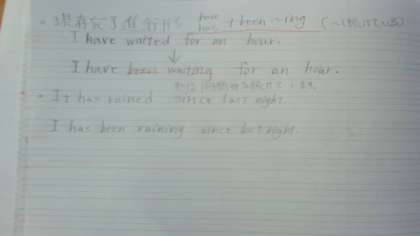 ・現在完了進行形 have has + been ~ing (~し続けている)
I have waited for an hour.
↓
I have been waiting for an hour.
私は1時間 続けて
・It has rained since last night.
I has been raining since last night.